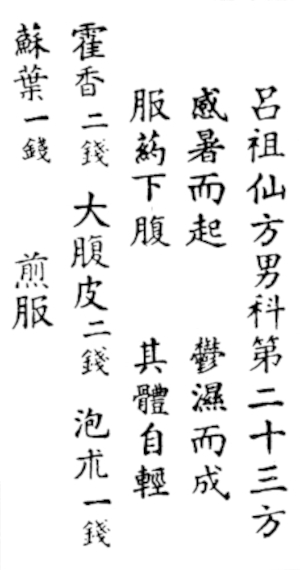 呂祖仙方男科第二十三方
感暑而起　鬱濕而成
服葯下腹　其體自輕
霍香二錢　大腹皮二錢　泡朮一錢
蘇葉一錢　煎服